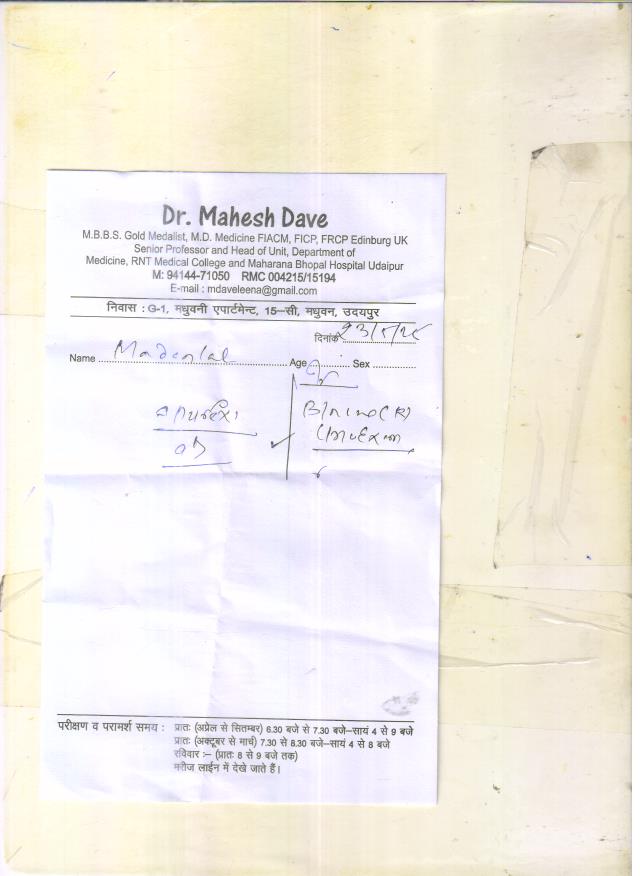 Dr. Mahesh Dave
M.B.B.S. Gold Medalist, M.D. Medicine FIACM, FICP, FRCP Edinburg UK
Senior Professor and Head of Unit, Department of
Medicine, RNT Medical College and Maharana Bhopal Hospital Udaipur
M: 94144-71050 RMC 004215/15194
E-mail : mdaveleena@gmail.com
निवास : G-1, मधुवनी एपार्टमेन्ट, 15–सी, मधुवन, उदयपुर
दिनांक
Name Madanlal Age Sex
परीक्षण व परामर्श समय : प्रातः (अप्रेल से सितम्बर) 6.30 बजे से 7.30 बजे–सायं 4 से 9 बजे
प्रातः (अक्टूबर से मार्च) 7.30 से 8.30 बजे–सायं 4 से 8 बजे
रविवार :– (प्रातः 8 से 9 बजे तक)
मरीज लाईन में देखे जाते हैं।